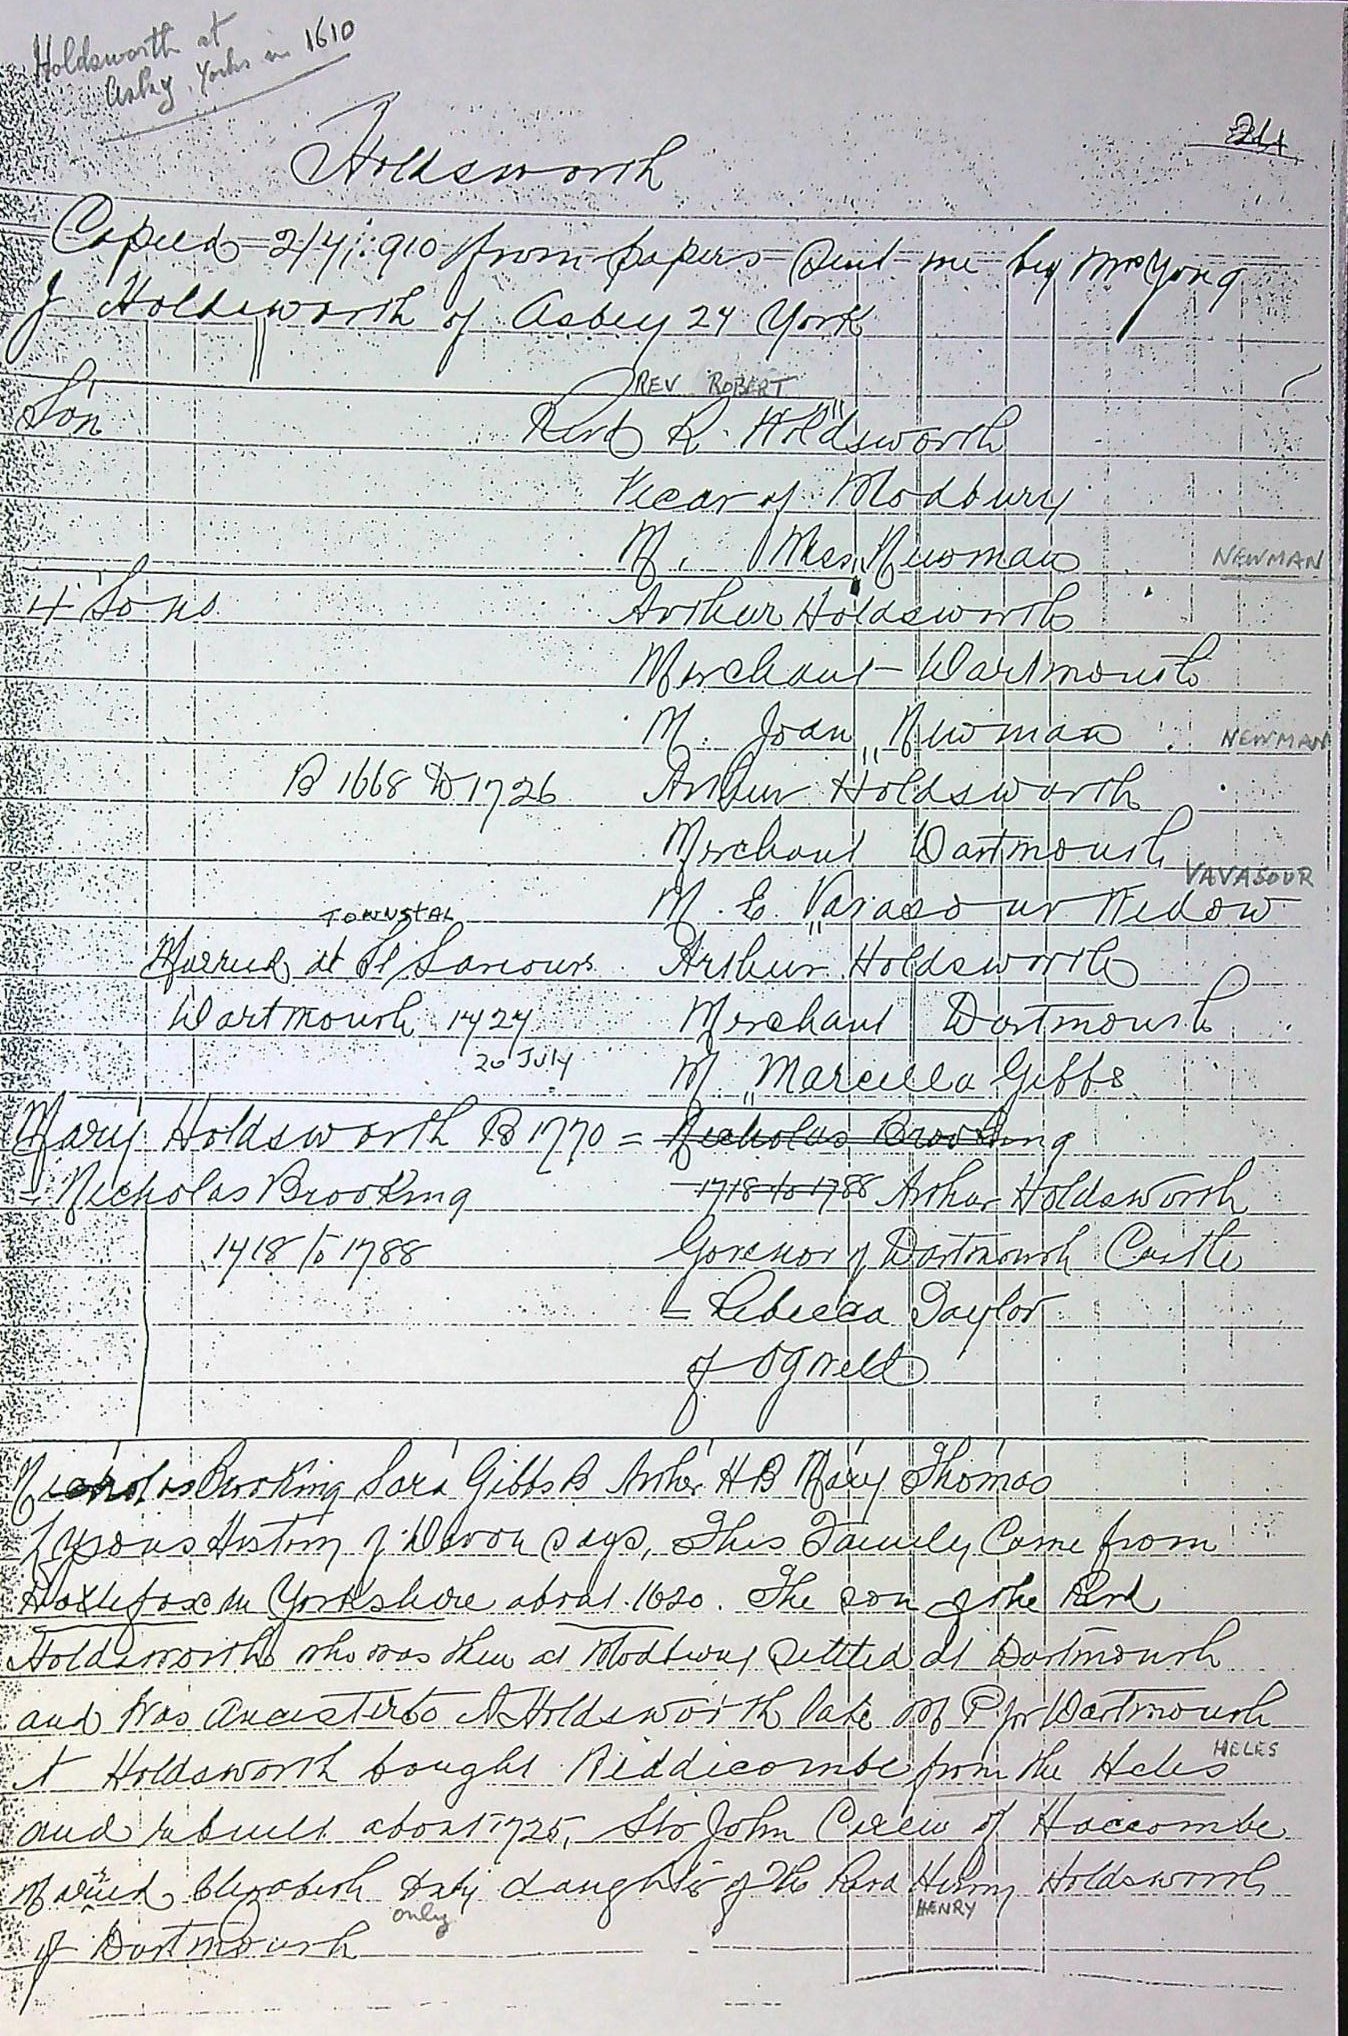 Holdsworth at
Asby, Yorks in 1610
Holdsworth
Copied 2/4/1910 from papers sent me by Mrs Yong
J Holdsworth of Asbey 24 York
REV ROBERT
Son Revd R. Holdsworth
Vicar of Modbury
M. Miss Newman NEWMAN
4 Sons Arthur Holdsworth
Merchant Dartmouth
M. Joan Newman NEWMAN
B 1668 D 1726 Arthur Holdsworth
Merchant Dartmouth
VAVASOUR
M. E. Vavasour Widow
TOWNSTAL
Married at St Saviours Arthur Holdsworth
Dartmouth 1724 Merchant Dartmouth
20 July
M. Marcella Gibbs
Mary Holdsworth B 1770 = Nicholas Brooking
= Nicholas Brooking 1718 to 1788 Arthur Holdsworth
1718 to 1788 Govenor of Dartmouth Castle
= Rebecca Taylor
of Ogwell
Nicholas Brooking Sara Gibbs B Arther H B Mary Thomas
Lysons History of Devon says, This Family Came from
Halifax in Yorkshire about 1620. The son of the Revd
Holdsworth who was then at Modbury settled at Dartmouth
and was Ancester to A Holdsworth late M P for Dartmouth
HELES
A Holdsworth bought Widdicombe from the Heles
and rebuilt about 1725, Sir John Carew of Haccombe
Married Elizabeth daughter of the Revd Henry Holdsworth
only HENRY
of Dartmouth